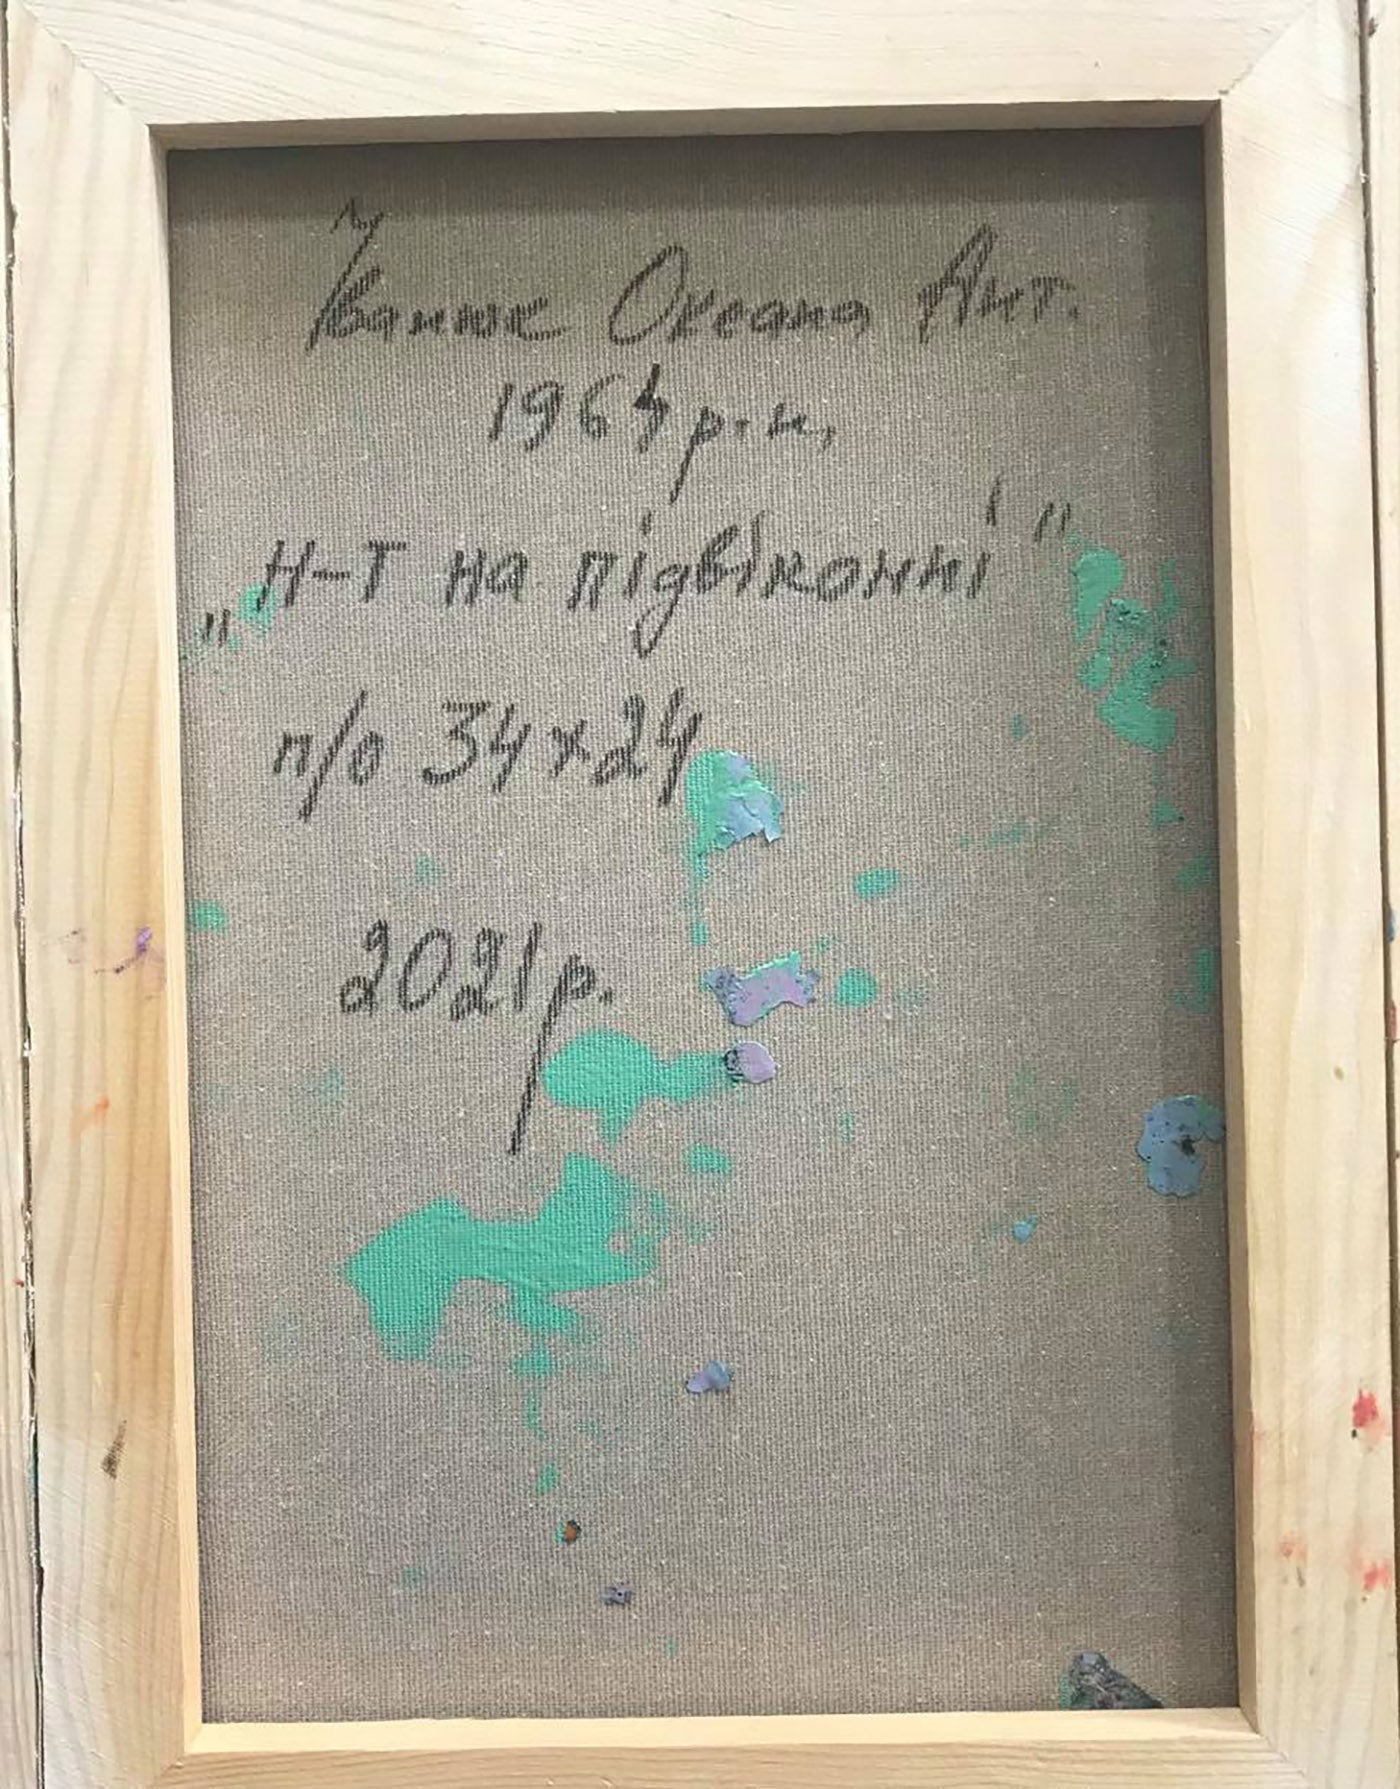 Іванюк Оксана Ант.
1964 р.н.
„Н-Т на підвіконні"
п/о 34х24
2021р.